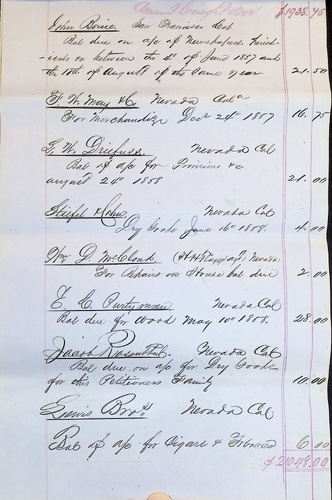 Amount brought over $1908.45
John Boice. San Francisco Cal
Bal due on a/c of Newspapers furnish-
-ed to between the 1st of June 1857 and
the 10th of August of the same year 21.50
F. W. May & Co Nevada Cala
For Merchandize Decr 24th 1857 16.75
G. W. Dreyfuss. Nevada Cal
Bal of a/c for Provisions &c
august 24th 1858 21.00
& Cohn. Nevada Cal
Dry Goods June 16th 1858 4.00
Wm D. McCloud Nevada
For Repairs on House bal due 2.00
E. C. Nevada Cal
Bal due for Wood May 10th 1858. 28.00
Jacob Rosenthal. Nevada Cal
Bal due, on a/c for Dry Goods
for this Petitioners Family 10.00
Lewis Bros Nevada Cal
Bal of a/c for Cigars & Tobacco 6.00
$2048.00